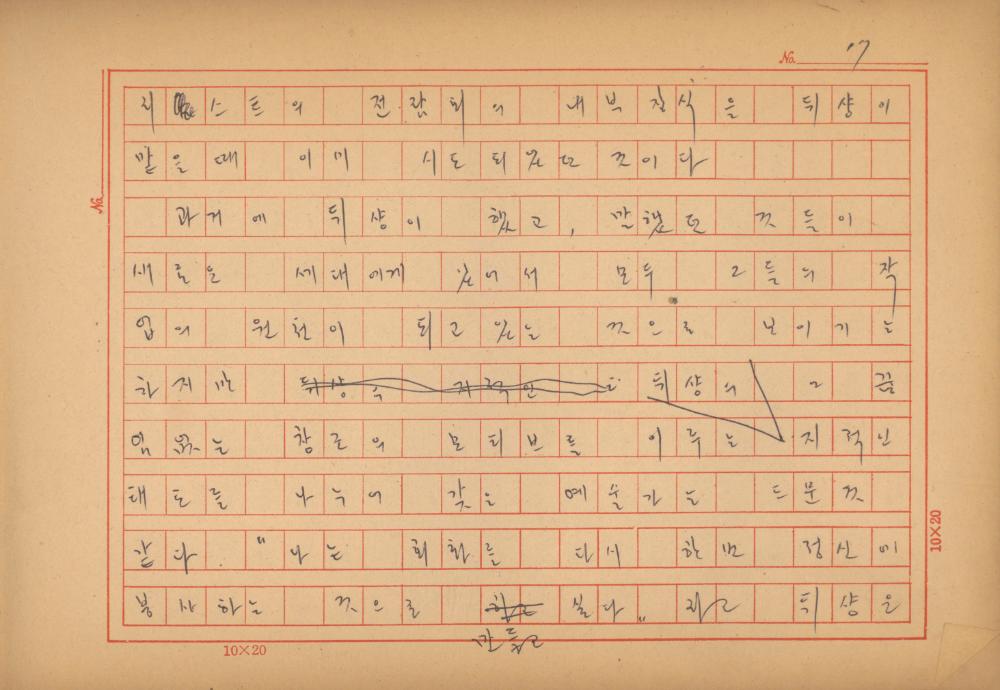 No. 17
No.
지스트의 전람회의 내부 장식을 뒤샹이
맡을때 이미 시도되었던 것이다
과거에 뒤샹이 했고, 말했던 것들이
새로운 세대에게 있어서 모두 그들의 작
업의 원천이 되고 있는 것으로 보이기는
하지만 뒤샹의 그 끊
임 없는 창조의 모티브를 이루는 지적인
태도를 나누어 갖은 예술가는 드문것
같다. "나는 회화를 다시 한번 정신에
봉사하는 것으로 하고 싶다" 라고 뒤샹은
만들고
10×20
10×20